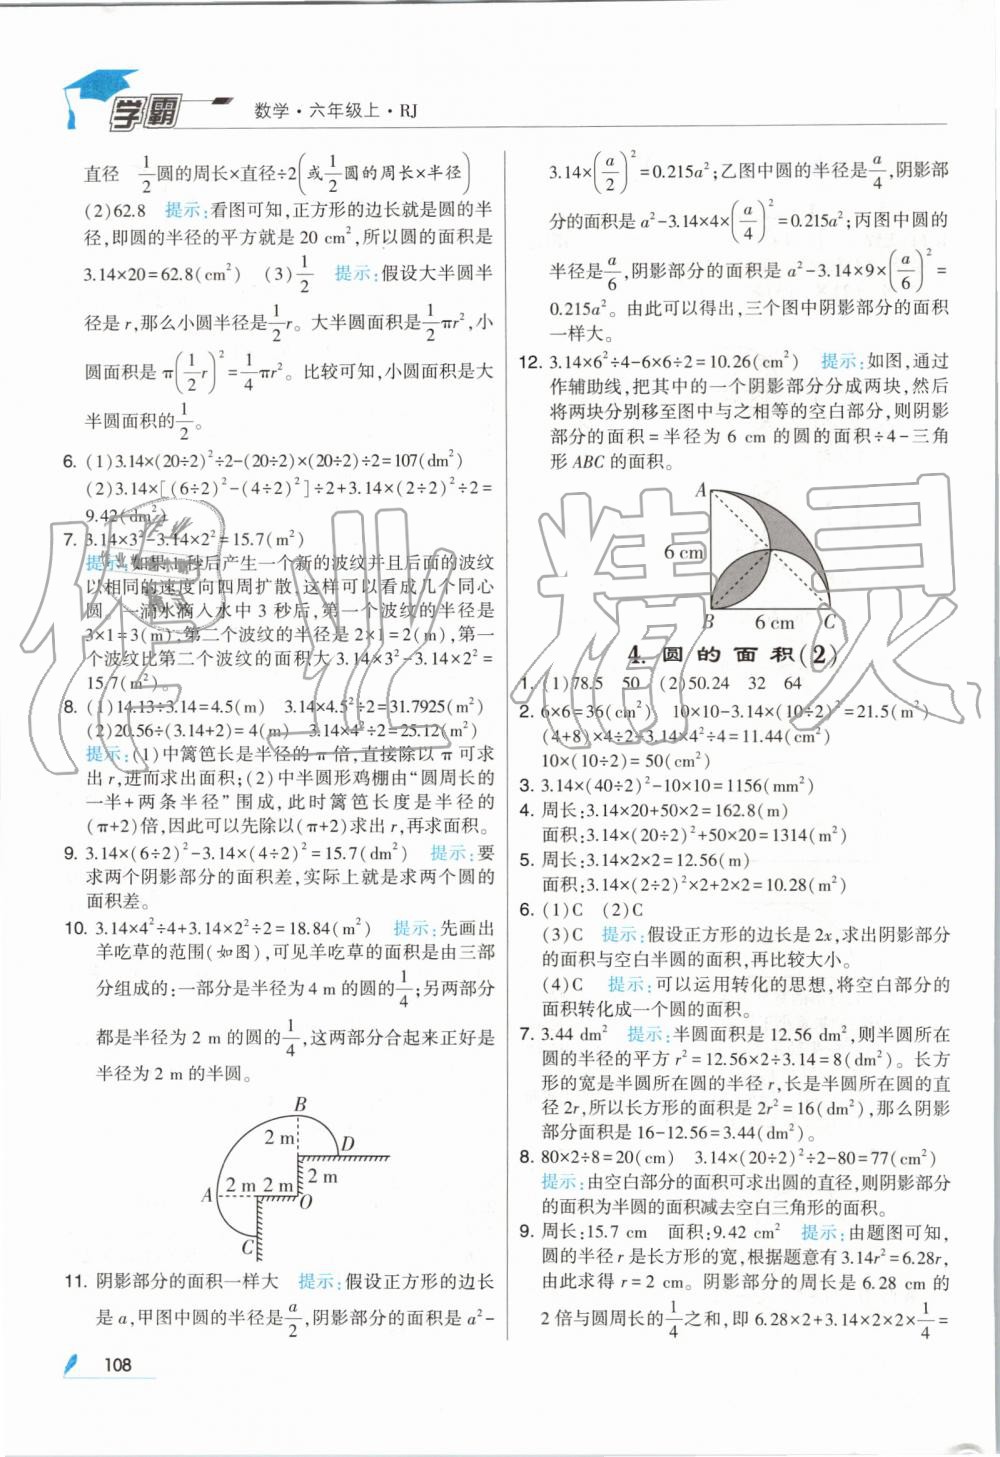 学霸
数学·六年级上·RJ
直径 1/2圆的周长×直径÷2(或1/2圆的周长×半径)
(2)62.8 提示:看图可知,正方形的边长就是圆的半
径,即圆的半径的平方就是 20 cm²,所以圆的面积是
3.14×20=62.8(cm²) (3)1/2 提示:假设大半圆半
径是 r,那么小圆半径是1/2r。大半圆面积是1/2πr²,小
圆面积是 π(1/2r)²=1/4πr²。比较可知,小圆面积是大
半圆面积的1/2。
6. (1)3.14×(20÷2)²÷2-(20÷2)×(20÷2)÷2=107(dm²)
(2)3.14×[(6÷2)²-(4÷2)²]÷2+3.14×(2÷2)²÷2=
9.42(dm²)
7. 3.14×3²-3.14×2²=15.7(m²)
提示:如果1秒后产生一个新的波纹并且后面的波纹
以相同的速度向四周扩散,这样可以看成几个同心
圆,一滴水滴入水中 3 秒后,第一个波纹的半径是
3×1=3(m),第二个波纹的半径是 2×1=2(m),第一
个波纹比第二个波纹的面积大 3.14×3²-3.14×2²=
15.7(m²)。
8. (1)14.13÷3.14=4.5(m) 3.14×4.5²÷2=31.7925(m²)
(2)20.56÷(3.14+2)=4(m) 3.14×4²÷2=25.12(m²)
提示:(1)中篱笆长是半径的 π 倍,直接除以 π 可求
出 r,进而求出面积;(2)中半圆形鸡棚由“圆周长的
一半+两条半径”围成,此时篱笆长度是半径的
(π+2)倍,因此可以先除以(π+2)求出 r,再求面积。
9. 3.14×(6÷2)²-3.14×(4÷2)²=15.7(dm²) 提示:要
求两个阴影部分的面积差,实际上就是求两个圆的
面积差。
10. 3.14×4²÷4+3.14×2²÷2=18.84(m²) 提示:先画出
羊吃草的范围(如图),可见羊吃草的面积由三部
分组成的:一部分是半径为 4 m 的圆的1/4;另两部分
都是半径为 2 m 的圆的1/4,这两部分合起来正好是
半径为 2 m 的半圆。
B
2 m D
2 m
A 2 m 2 m O
C
11. 阴影部分的面积一样大 提示:假设正方形的边长
是 a,甲图中圆的半径是a/2,阴影部分的面积是 a²-
108
3.14×(a/2)²=0.215a²;乙图中圆的半径是a/4,阴影部
分的面积是 a²-3.14×4×(a/4)²=0.215a²;丙图中圆的
半径是a/6,阴影部分的面积是 a²-3.14×9×(a/6)²=
0.215a²。由此可以得出,三个图中阴影部分的面积
一样大。
12. 3.14×6²÷4-6×6÷2=10.26(cm²) 提示:如图,通过
作辅助线,把其中的一个阴影部分分成两块,然后
将两块分别移至图中与之相等的空白部分,则阴影
部分的面积=半径为 6 cm 的圆的面积÷4-三角
形 ABC 的面积。
A
6 cm
B 6 cm C
4. 圆的面积(2)
1. (1)78.5 50 (2)50.24 32 64
2. 6×6=36(cm²) 10×10-3.14×(10÷2)²=21.5(m²)
(4+8)×4÷2-3.14×4²÷4=11.44(cm²)
10×(10÷2)=50(cm²)
3. 3.14×(40÷2)²-10×10=1156(mm²)
4. 周长:3.14×20+50×2=162.8(m)
面积:3.14×(20÷2)²+50×20=1314(m²)
5. 周长:3.14×2×2=12.56(m)
面积:3.14×(2÷2)²×2+2×2=10.28(m²)
6. (1)C (2)C
(3)C 提示:假设正方形的边长是 2x,求出阴影部分
的面积与空白半圆的面积,再比较大小。
(4)C 提示:可以运用转化的思想,将空白部分的
面积转化成一个圆的面积。
7. 3.44 dm² 提示:半圆面积是 12.56 dm²,则半圆所在
圆的半径的平方 r²=12.56×2÷3.14=8(dm²)。长方
形的宽是半圆所在圆的半径 r,长是半圆所在圆的直径
2r,所以长方形的面积是 2r²=16(dm²),那么阴影
部分面积是 16-12.56=3.44(dm²)。
8. 80×2÷8=20(cm) 3.14×(20÷2)²÷2-80=77(cm²)
提示:由空白部分的面积可求出圆的直径,则阴影部分
的面积为半圆的面积减去空白三角形的面积。
9. 周长:15.7 cm 面积:9.42 cm² 提示:由题图可知,
圆的半径 r 是长方形的宽,根据题意有 3.14r²=6.28r,
由此求得 r=2 cm。阴影部分的周长是 6.28 cm 的
2 倍与圆周长的1/4之和,即 6.28×2+3.14×2×2×1/4=
作业精灵